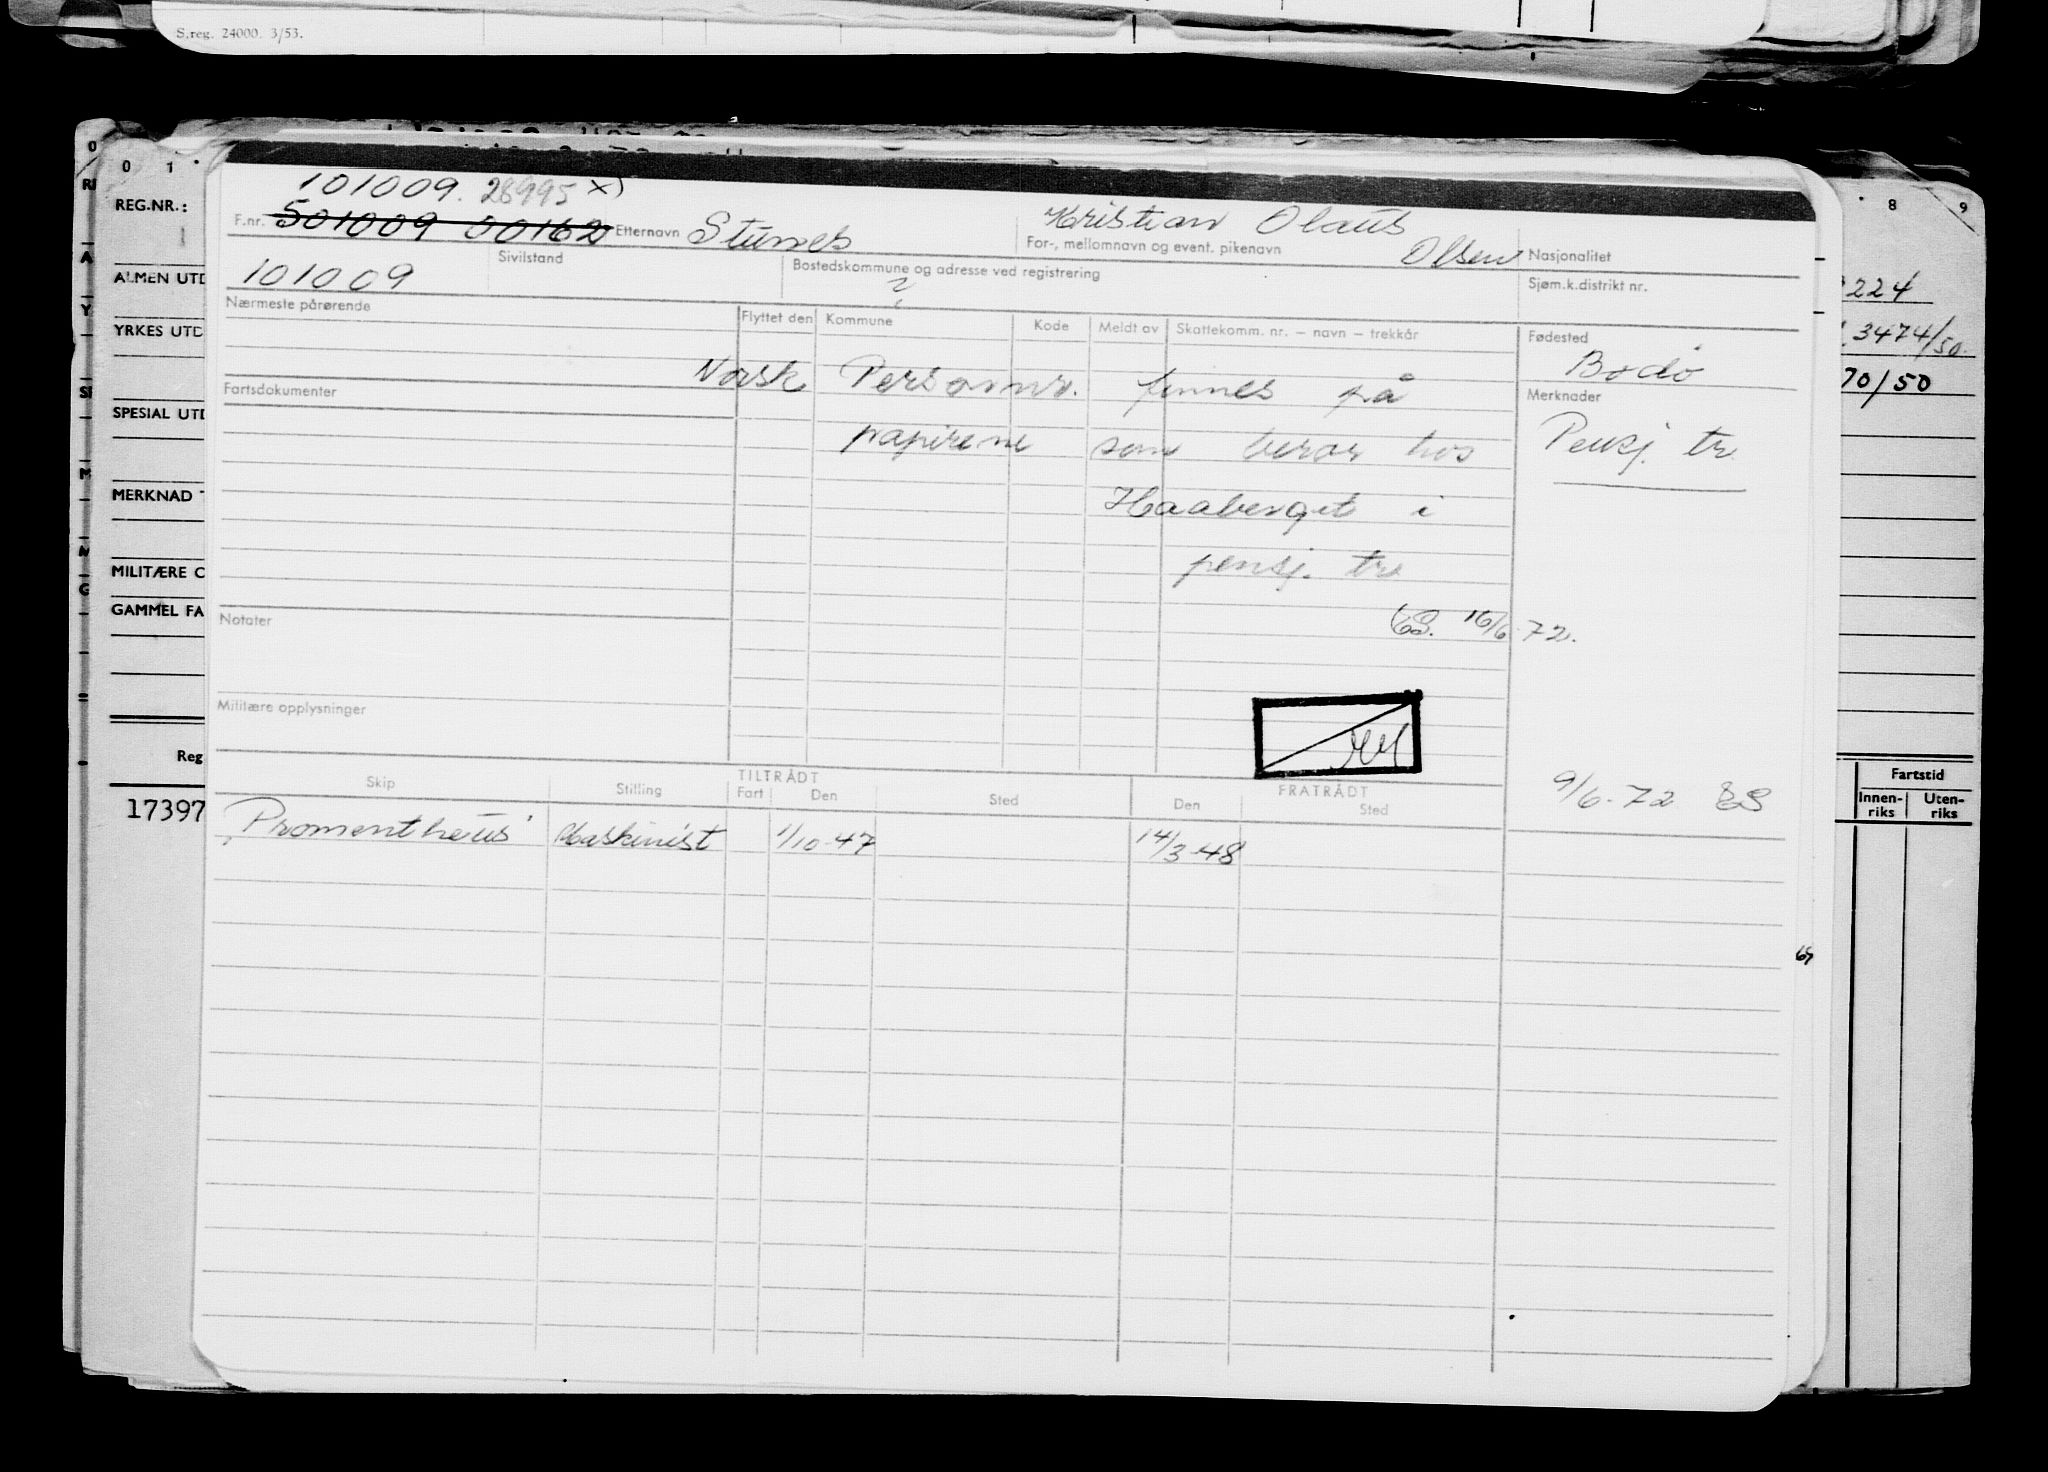 S.reg. 24000. 3/53.
0 1
8 9
REG.NR.:
ALMEN UTD
YRKES UTD
SPESIAL UTD
MERKNAD T
MILITÆRE O
GAMMEL FA
Reg
17397
224
3474/50.
70/50
Fartstid
Innen-riks Uten-riks
101009. 28995 x)
F.nr. 501009 00162 Etternavn Stunes Kristian Olaus
For-, mellomnavn og event. pikenavn Olsen Nasjonalitet
101009 Sivilstand Bostedskommune og adresse ved registrering
? Sjøm.k.distrikt nr.
Nærmeste pårørende Flyttet den Kommune Kode Meldt av Skattekomm. nr. – navn – trekkår Fødested
Bodø
Norsk Personnr. finnes på
Fartsdokumenter Merknader
papirene som beror hos Pensj. tr.
Haaberget i
pensj. tr.
Notater
16/6-72.
Militære opplysninger
9/6-72 ES
Skip Stilling TILTRÅDT FRATRÅDT
Fart Den Sted Den Sted
"Promentheus" Maskinist 1/10-47 14/3-48